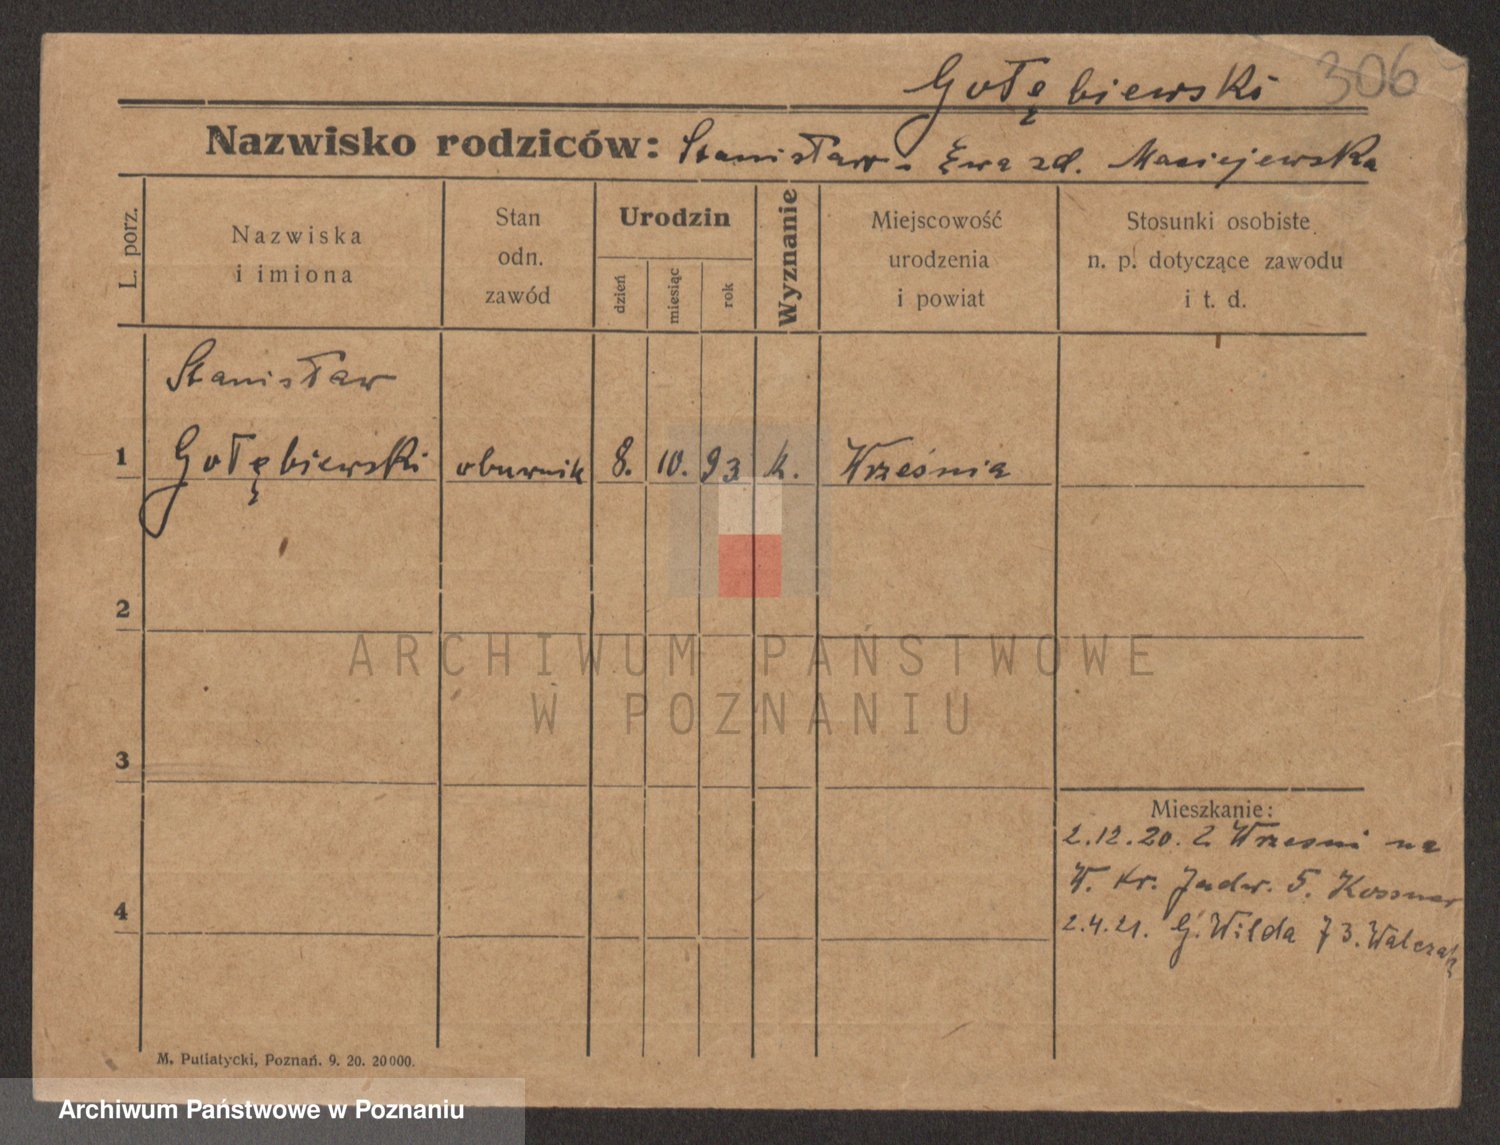 Gołębiewski 306
Nazwisko rodziców: Stanisław - Ewa zd. Maciejewska
L. porz.
Nazwiska
i imiona
Stan
odn.
zawód
Urodzin
dzień
miesiąc
rok
Wyznanie
Miejscowość
urodzenia
i powiat
Stosunki osobiste
n. p. dotyczące zawodu
i t. d.
Stanisław
1 Gołębiewski oburnik 8. 10. 93 k. Września
2
3
4
Mieszkanie:
2.12.20. Z Wrzesni na
W. Kr. Jadw. 5.
2.4.21. G. Wilda 73. Walczak
M. Putiatycki, Poznań. 9. 20. 20000.
ARCHIWUM PAŃSTWOWE
W POZNANIU
Archiwum Państwowe w Poznaniu